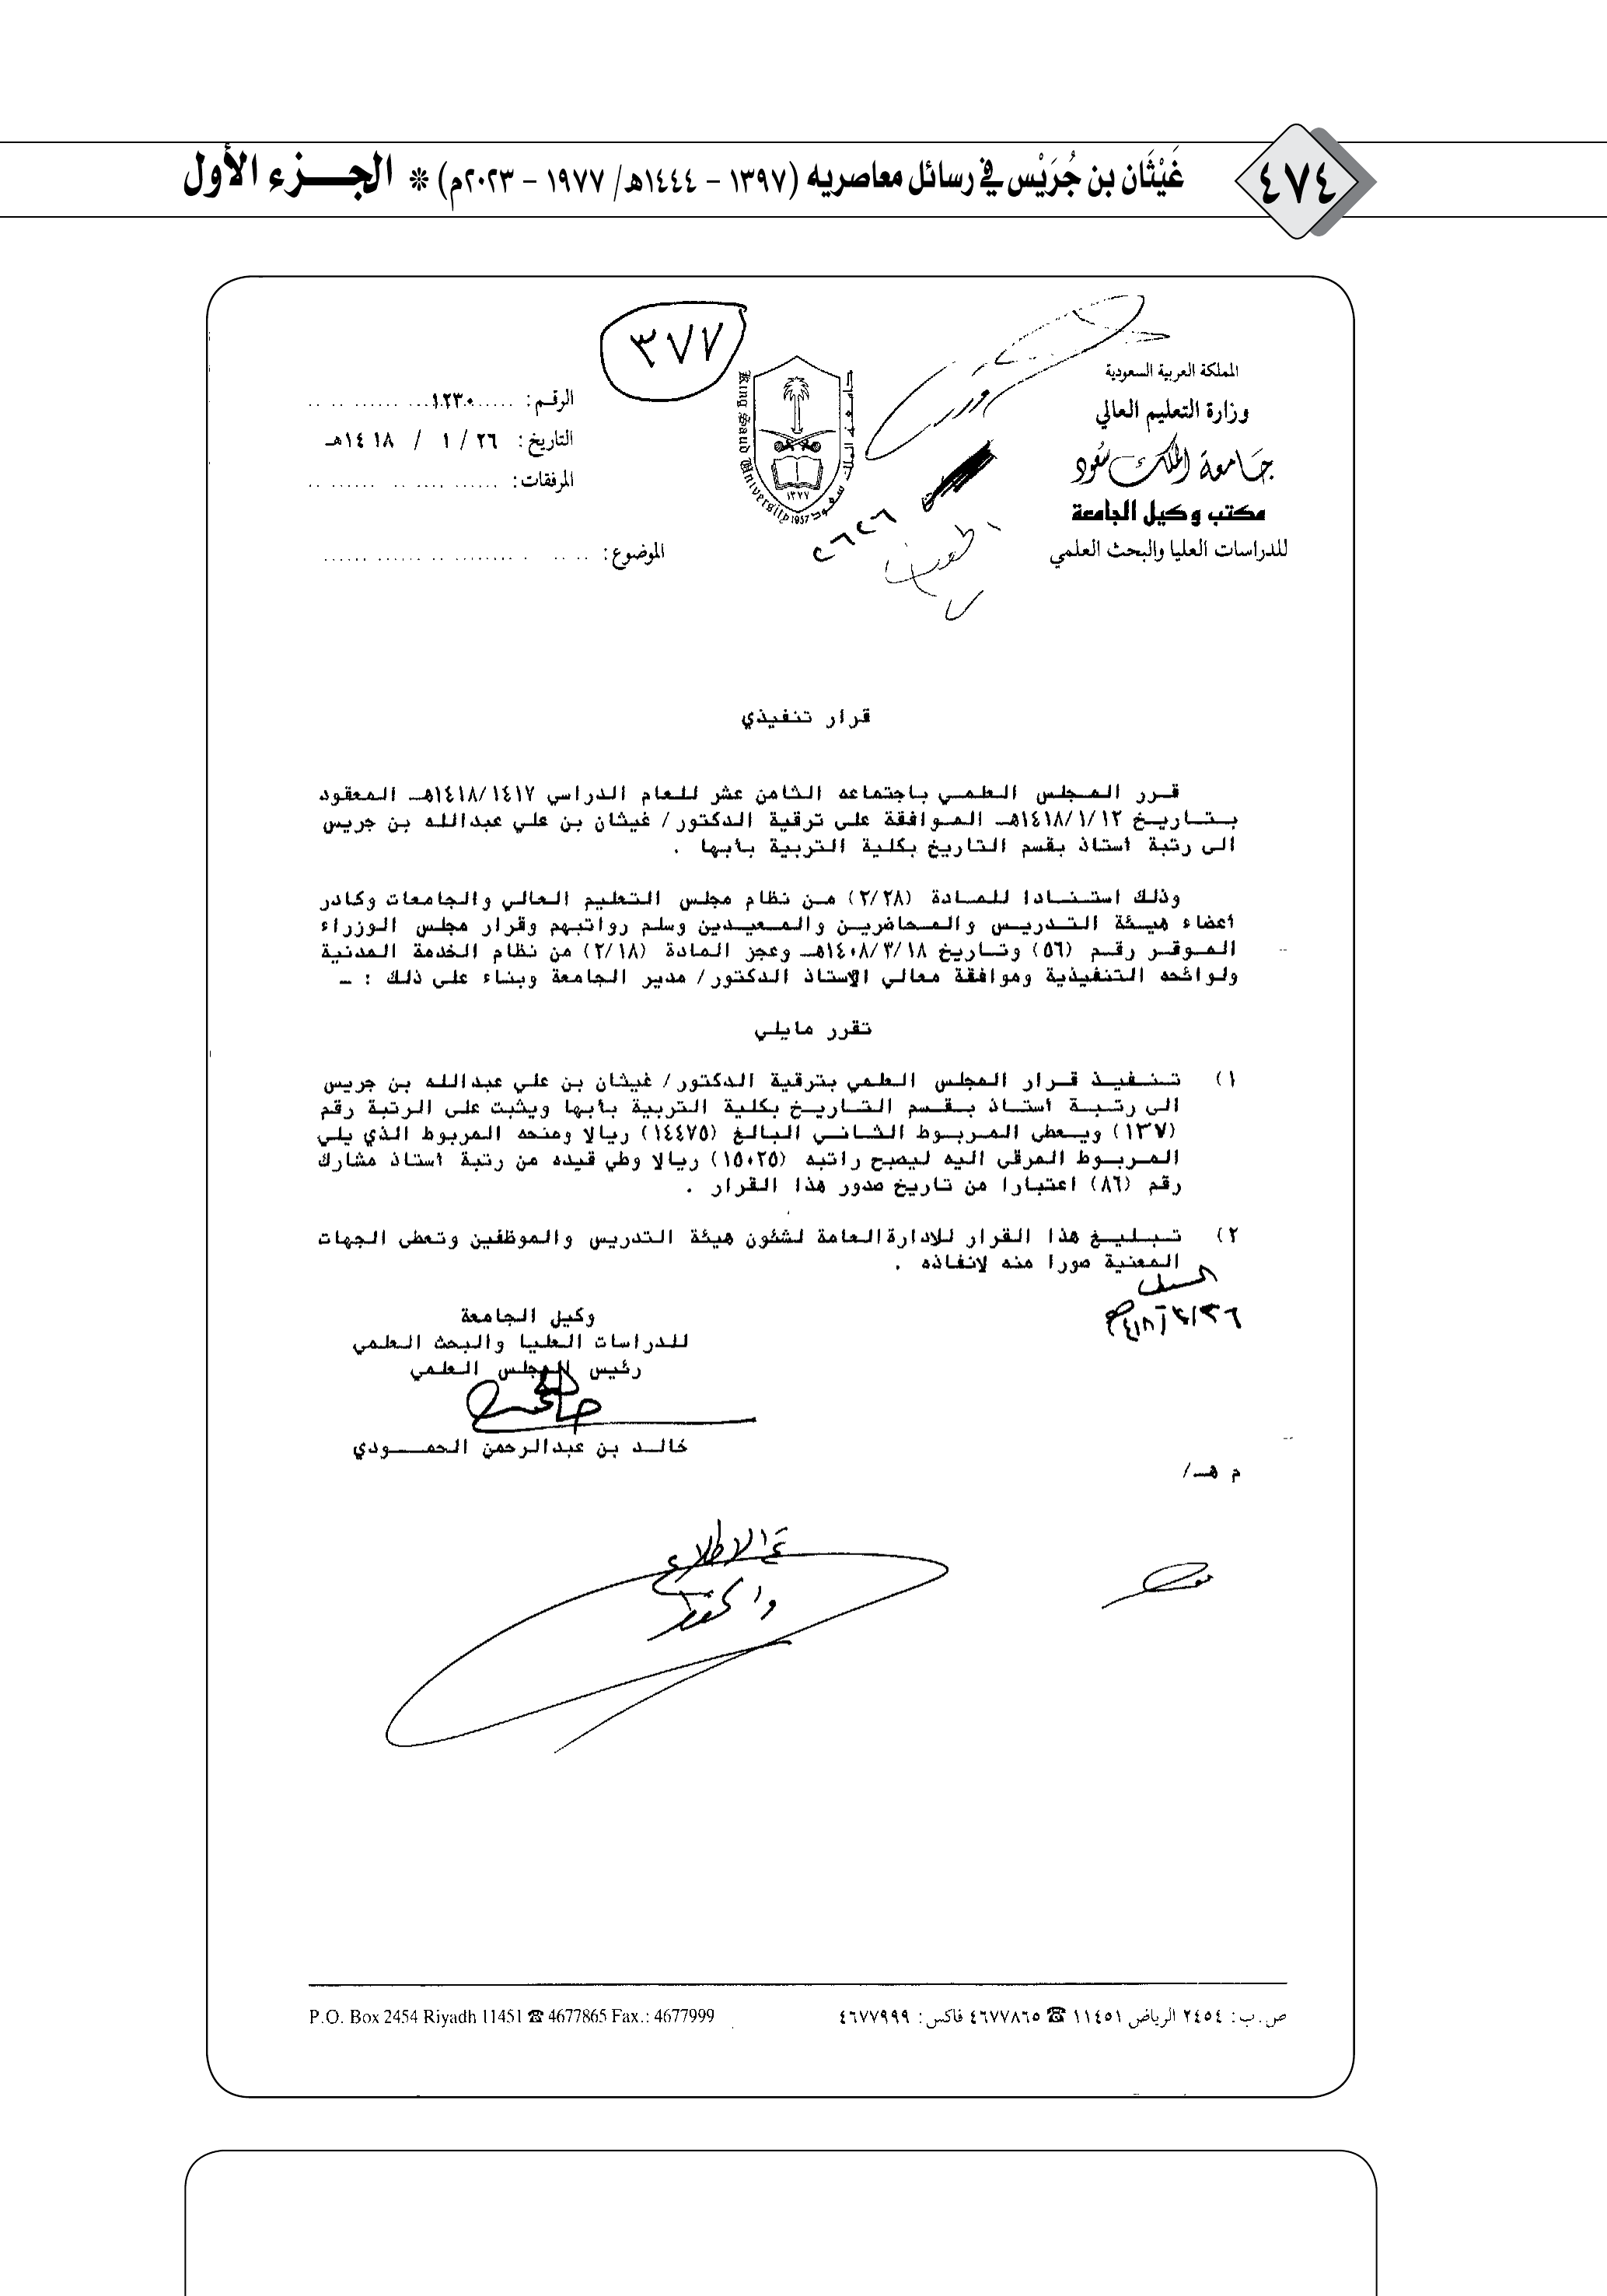 ٤٧٤
غَيْثَان بن جُرَيْس في رسائل معاصريه (١٣٩٧ - ١٤٤٤هـ/ ١٩٧٧ - ٢٠٢٣م) * الجـــزء الأول
٣٧٧
المملكة العربية السعودية
وزارة التعليم العالي
جامعة الملك سعود
مكتب وكيل الجامعة
للدراسات العليا والبحث العلمي
جامعة الملك سعود
King Saud University
١٣٧٧
1957
الرقم : ١٢٣٠
التاريخ : ٢٦ / ١ / ١٤١٨هـ
المرفقات :
الموضوع :
قرار تنفيذي
قـرر المـجلس العلمـي باجتماعه الثامن عشر للعام الدراسي ١٤١٨/١٤١٧هـ المعقود
بـتـاريـخ ١٤١٨/١/١٢هـ المـوافقة على ترقية الدكتور/ غيثان بن علي عبدالله بن جريس
الى رتبة أستاذ بقسم التاريخ بكلية التربية بأبها .
وذلك استـنـادا للمـادة (٢/٢٨) مـن نظام مجلس التعليم العالي والجامعات وكادر
أعضاء هيـئة التـدريـس والمـحاضريـن والمـعيـدين وسلم رواتبهم وقرار مجلس الوزراء
المـوقـر رقـم (٥٦) وتـاريخ ١٤٠٨/٣/١٨هـ وعجز المادة (٢/١٨) من نظام الخدمة المدنية
ولوائحه التنفيذية وموافقة معالي الاستاذ الدكتور/ مدير الجامعة وبناء على ذلك : ـ
تقرر مايلي
١) تـنـفيـذ قـرار المجلس العلمي بترقية الدكتور/ غيثان بن علي عبدالله بن جريس
الى رتـبـة أستـاذ بـقـسم التـاريـخ بكلية التربية بأبها ويثبت على الرتبة رقم
(١٣٧) ويـعطى المـربـوط الثـانـي البالغ (١٤٤٧٥) ريالا ومنحه المربوط الذي يلي
المـربـوط المرقى اليه ليصبح راتبه (١٥٠٢٥) ريالا وطي قيده من رتبة أستاذ مشارك
رقم (٨٦) اعتبارا من تاريخ صدور هذا القرار .
٢) تـبـليـغ هذا القرار للادارة العامة لشئون هيئة التدريس والموظفين وتعطى الجهات
المعنية صورا منه لانفاذه .
وكيل الجامعة
للدراسات العليا والبحث العلمي
رئيس المجلس العلمي
خالـد بن عبدالرحمن الحمـــودي
م هـ/
تم الاطلاع
والحفظ
ص.ب : ٢٤٥٤ الرياض ١١٤٥١ ☎ ٤٦٧٧٨٦٥ فاكس : ٤٦٧٧٩٩٩
P.O. Box 2454 Riyadh 11451 ☎ 4677865 Fax.: 4677999